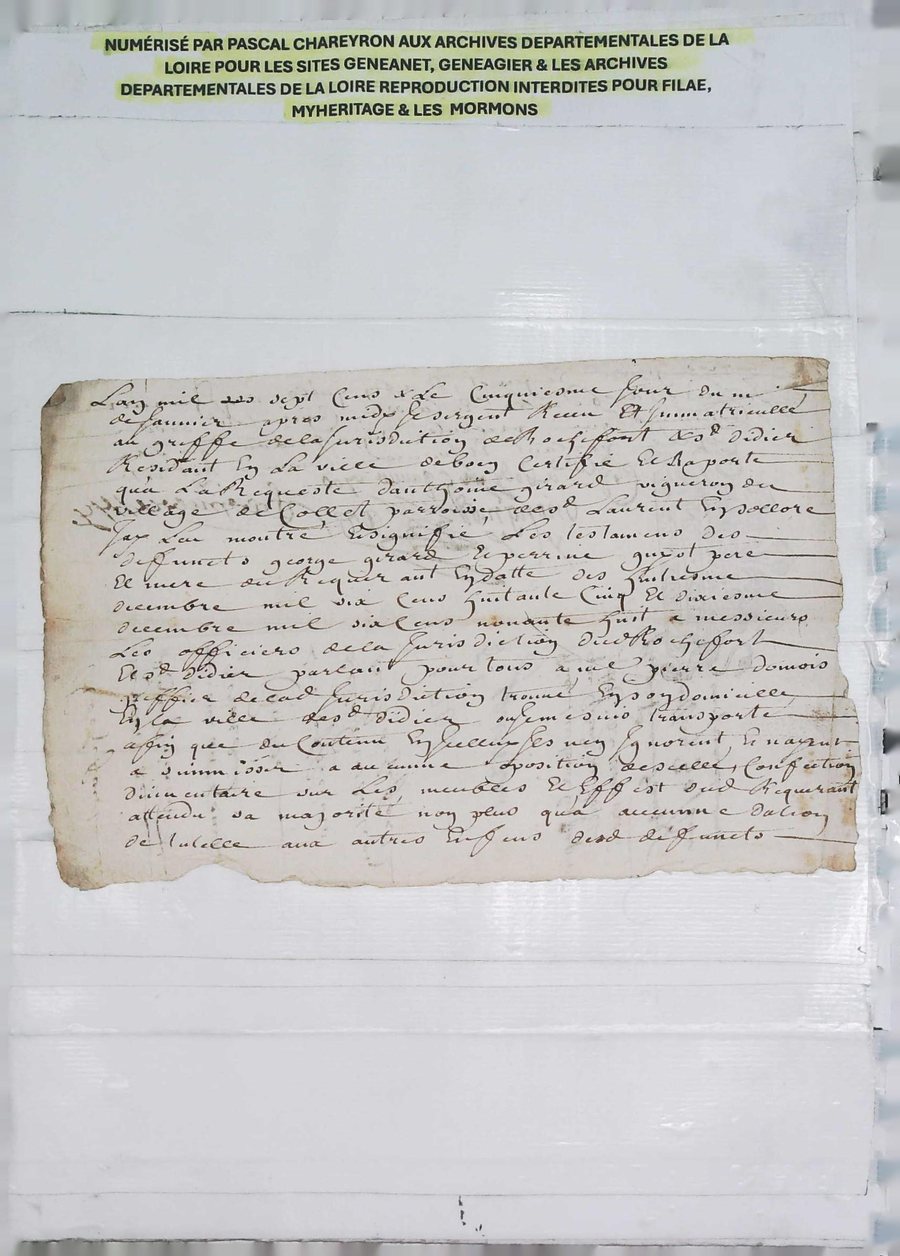 NUMÉRISÉ PAR PASCAL CHAREYRON AUX ARCHIVES DEPARTEMENTALES DE LA
LOIRE POUR LES SITES GENEANET, GENEAGIER & LES ARCHIVES
DEPARTEMENTALES DE LA LOIRE REPRODUCTION INTERDITES POUR FILAE,
MYHERITAGE & LES MORMONS
Lan mil sept Cens & Le Cinquiesme Jour du
de Janvier apres midy Je sergent Receu Et Immatricullé
au greffe de la Jurisdiction de Rochefort & St didier
Residant En La ville deboen Certifie Et Raporte
qua La Requeste danthoine girard vigneron du
village de Collet parroisse de St Laurent
Jay Leu montré Et signifié Les testamens des
deffuncts george girard Et perrine guyot pere
Et mere du Requerant En datte des huitiesme
decembre mil six Cens huitante Cinq Et dixiesme
decembre mil six Cens nonante huit a messieurs
Les officiers de la Jurisdiction dud Rochefort
Et St didier parlant pour tous a me pierre domois
greffier de lad Jurisdiction trouvé En son domicille
En la ville de St didier transporté
affin que du Contenu En Iceux Ils nen Ignorent
a simmisser a aucunne oposition descelle Confection
dinventaire sur Les meubles Et Effest dud Requerant
attendu sa majorité non plus qua aucunne dation
de tutelle aux autres Enfens desd deffuncts